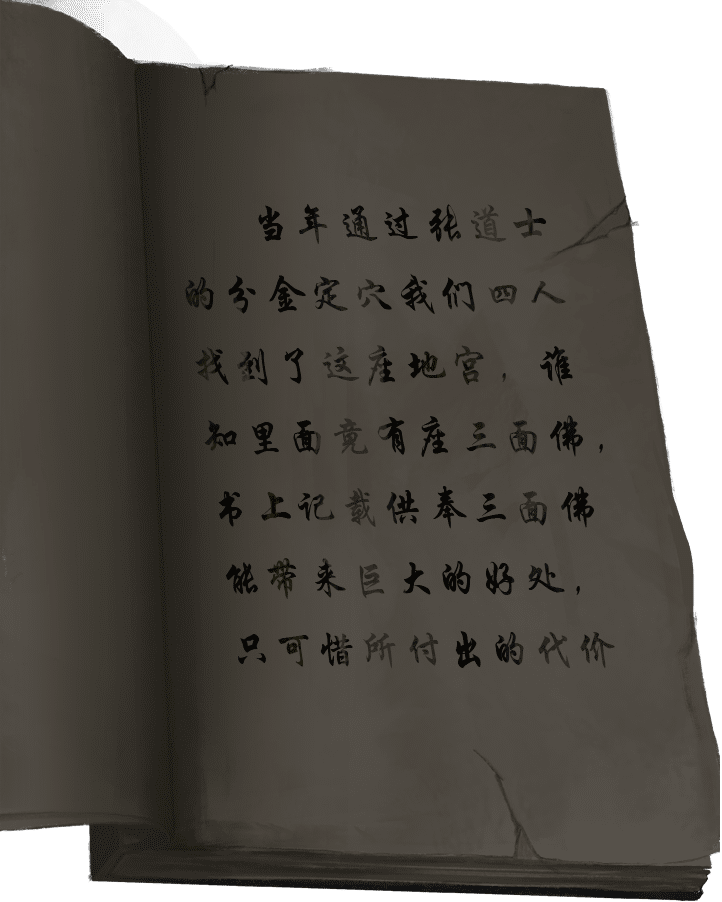 当年通过张道士
的分金定穴我们四人
找到了这座地宫，谁
知里面竟有座三面佛，
书上记载供奉三面佛
能带来巨大的好处，
只可惜所付出的代价